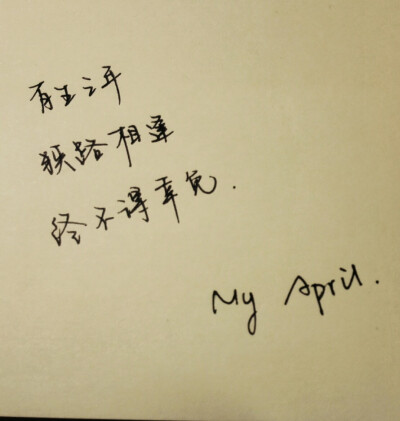 有生之年
狭路相逢
终不得幸免.
My April.